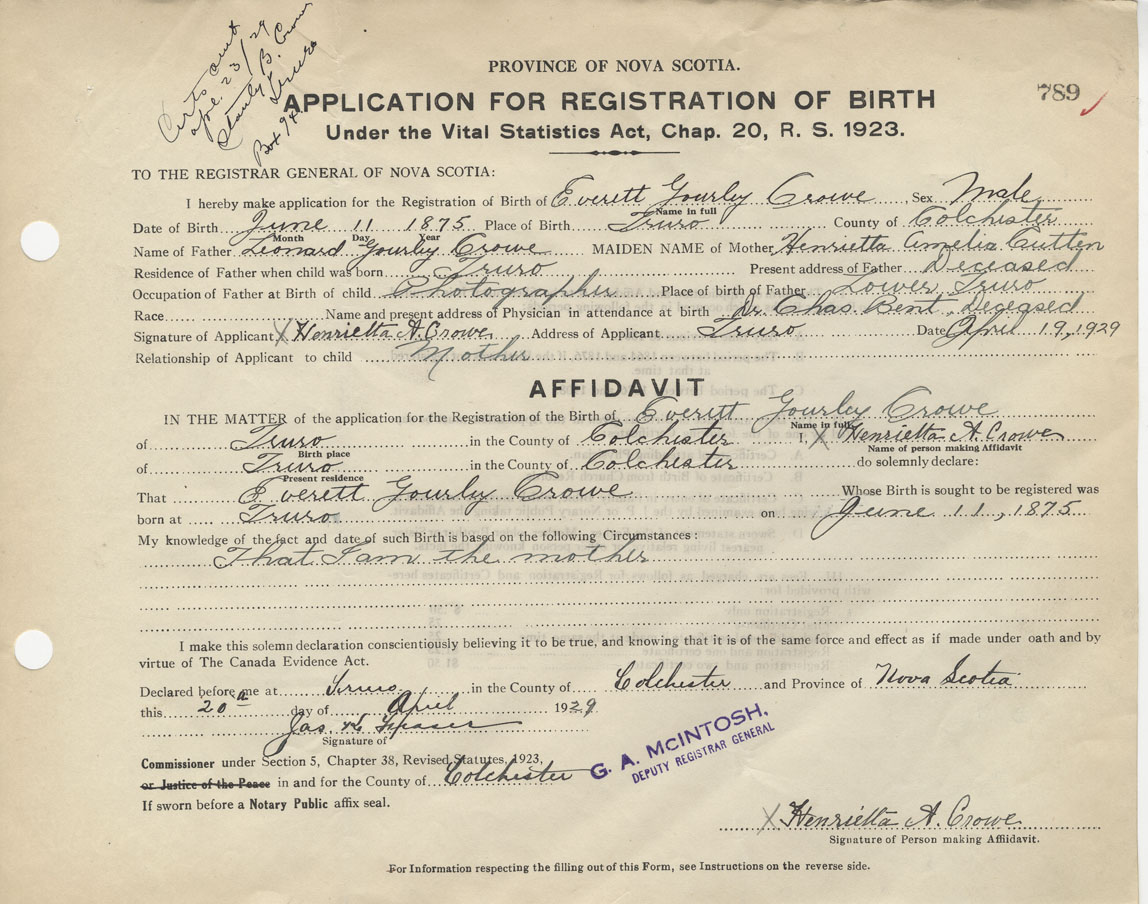 Certs sent
Apl. 23/29
Stanly B. Crowe
Truro
Box 94
PROVINCE OF NOVA SCOTIA.
789
APPLICATION FOR REGISTRATION OF BIRTH
Under the Vital Statistics Act, Chap. 20, R. S. 1923.
TO THE REGISTRAR GENERAL OF NOVA SCOTIA:
I hereby make application for the Registration of Birth of Everett Gourley Crowe Sex Male
Name in full
Date of Birth June 11 1875 Place of Birth Truro County of Colchester
Month Day Year
Name of Father Leonard Gourley Crowe MAIDEN NAME of Mother Henrietta Amelia Cutten
Residence of Father when child was born Truro Present address of Father Deceased
Occupation of Father at Birth of child Photographer Place of birth of Father Lower Truro
Race Name and present address of Physician in attendance at birth Dr. Chas. Bent, Deceased
Signature of Applicant X Henrietta A. Crowe Address of Applicant Truro Date April 19, 1929
Relationship of Applicant to child Mother
AFFIDAVIT
IN THE MATTER of the application for the Registration of the Birth of Everett Gourley Crowe
Name in full
of Truro in the County of Colchester I, X Henrietta A. Crowe
Birth place Name of person making Affidavit
of Truro in the County of Colchester do solemnly declare:
Present residence
That Everett Gourley Crowe Whose Birth is sought to be registered was
born at Truro on June 11, 1875
My knowledge of the fact and date of such Birth is based on the following Circumstances:
That I am the mother
I make this solemn declaration conscientiously believing it to be true, and knowing that it is of the same force and effect as if made under oath and by
virtue of The Canada Evidence Act.
Declared before me at Truro in the County of Colchester and Province of Nova Scotia
this 20 day of April 1929
Signature of
Commissioner under Section 5, Chapter 38, Revised Statutes, 1923,
or Justice of the Peace in and for the County of Colchester
G. A. McINTOSH,
DEPUTY REGISTRAR GENERAL
If sworn before a Notary Public affix seal.
X Henrietta A. Crowe
Signature of Person making Affiidavit.
For Information respecting the filling out of this Form, see Instructions on the reverse side.